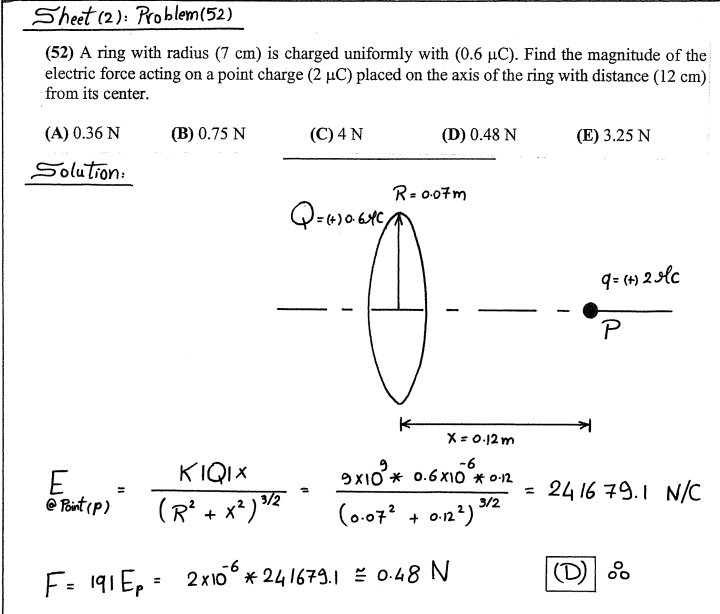 Sheet (2): Problem (52)
(52) A ring with radius (7 cm) is charged uniformly with (0.6 μC). Find the magnitude of the
electric force acting on a point charge (2 μC) placed on the axis of the ring with distance (12 cm)
from its center.
(A) 0.36 N (B) 0.75 N (C) 4 N (D) 0.48 N (E) 3.25 N
Solution:
R = 0.07m
Q = (+) 0.6 μC
q = (+) 2 μC
P
x = 0.12m
E @ Point (P) = K|Q|x / (R² + x²)^3/2 = 9x10^9 * 0.6x10^-6 * 0.12 / (0.07² + 0.12²)^3/2 = 241679.1 N/C
F = |q| E_P = 2x10^-6 * 241679.1 ≅ 0.48 N (D)